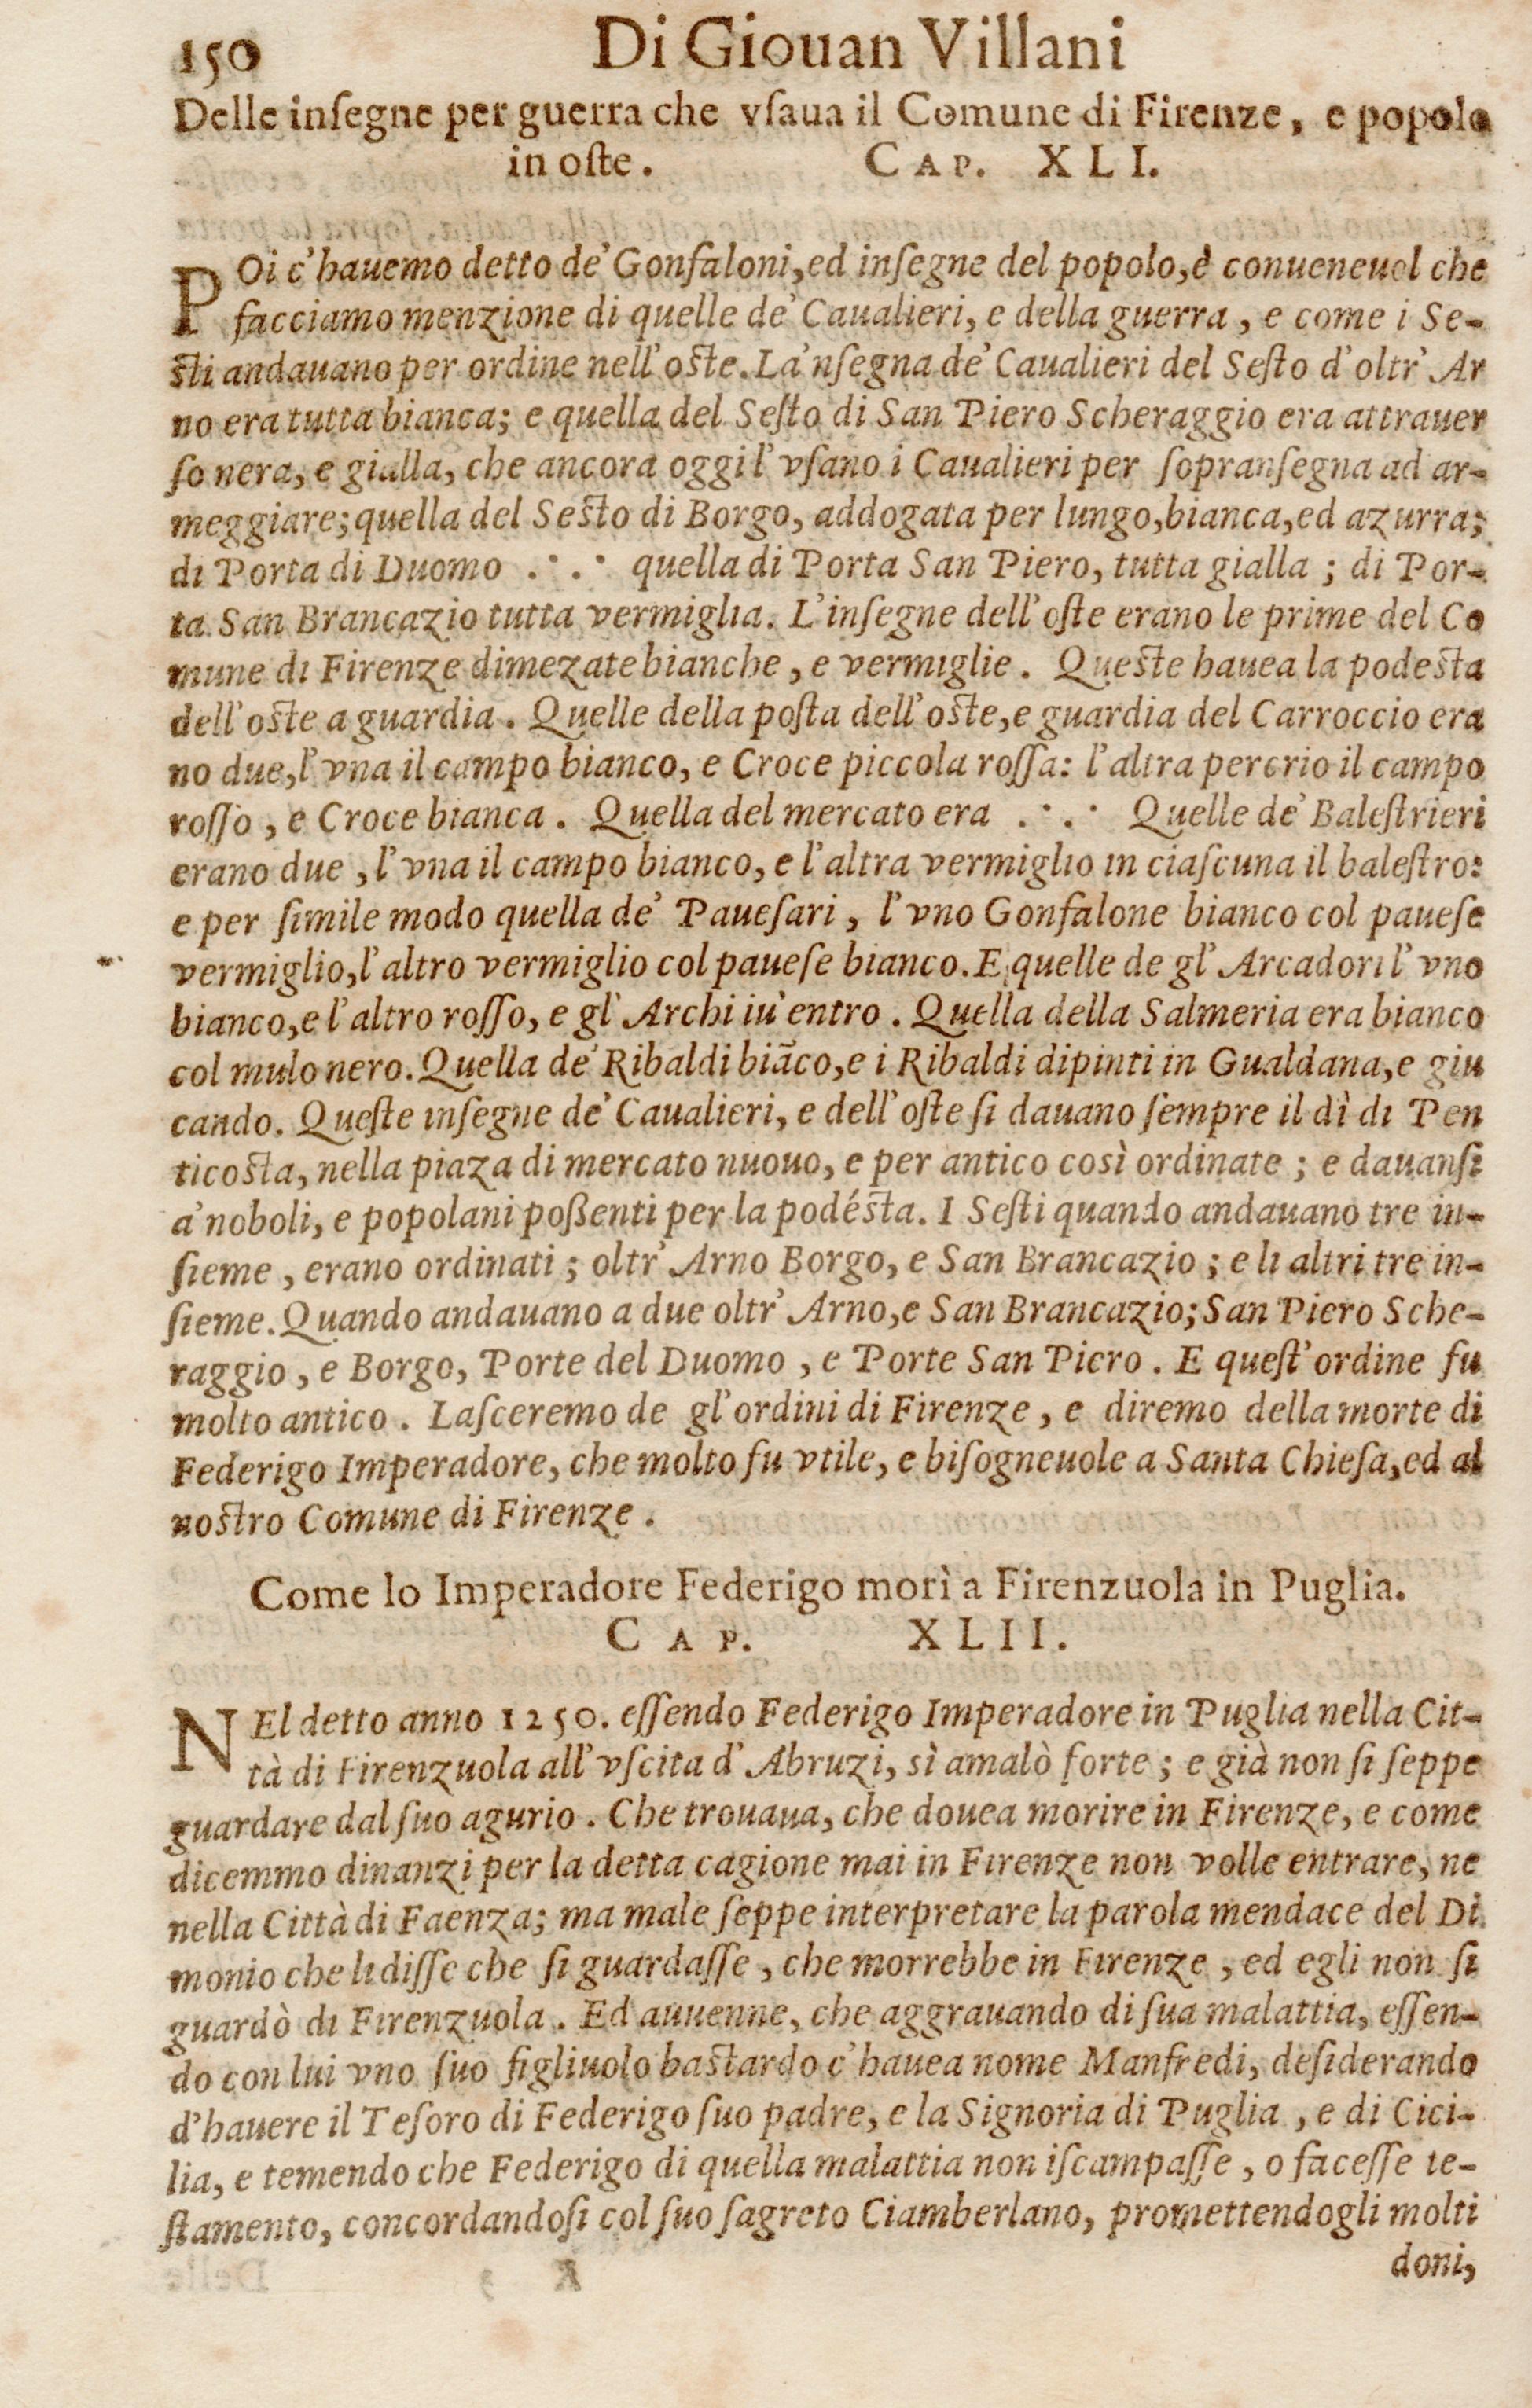 150 Di Giouan Villani
Delle inſegne per guerra che vſaua il Comune di Firenze, e popolo
in oſte. CAP. XLI.
POi c'hauemo detto de' Gonfaloni,ed inſegne del popolo,è conueneuol che
facciamo menzione di quelle de' Caualieri, e della guerra, e come i Se-
ſti andauano per ordine nell'oſte. La'nſegna de' Caualieri del Seſto d'oltr' Ar
no era tutta bianca; e quella del Seſto di San Piero Scheraggio era attrauer
ſo nera, e gialla, che ancora oggi l'vſano i Caualieri per ſopranſegna ad ar-
meggiare; quella del Seſto di Borgo, addogata per lungo,bianca,ed azurra;
di Porta di Duomo .·.· quella di Porta San Piero, tutta gialla; di Por-
ta San Brancazio tutta vermiglia. L'inſegne dell'oſte erano le prime del Co
mune di Firenze dimezate bianche, e vermiglie. Queſte hauea la podeſta
dell'oſte a guardia. Quelle della poſta dell'oſte,e guardia del Carroccio era
no due,l'vna il campo bianco, e Croce piccola roſſa: l'altra percrio il campo
roſſo, e Croce bianca. Quella del mercato era .·.· Quelle de' Baleſtrieri
erano due, l'vna il campo bianco, e l'altra vermiglio in ciaſcuna il baleſtro:
e per ſimile modo quella de' Paueſari, l'vno Gonfalone bianco col paueſe
vermiglio,l'altro vermiglio col paueſe bianco. E quelle de gl'Arcadori l'vno
bianco,e l'altro roſſo, e gl'Archi iu'entro. Quella della Salmeria era bianco
col mulo nero. Quella de' Ribaldi biãco,e i Ribaldi dipinti in Gualdana,e giu
cando. Queſte inſegne de' Caualieri, e dell'oſte ſi dauano ſempre il dì di Pen
ticoſta, nella piaza di mercato nuouo, e per antico così ordinate; e dauanſi
a' noboli, e popolani poßenti per la podéſta. I Seſti quando andauano tre in-
ſieme, erano ordinati; oltr'Arno Borgo, e San Brancazio; e li altri tre in-
ſieme. Quando andauano a due oltr'Arno,e San Brancazio; San Piero Sche-
raggio, e Borgo, Porte del Duomo, e Porte San Piero. E queſt'ordine fu
molto antico. Laſceremo de gl'ordini di Firenze, e diremo della morte di
Federigo Imperadore, che molto fu vtile, e biſogneuole a Santa Chieſa,ed al
noſtro Comune di Firenze.
Come lo Imperadore Federigo morì a Firenzuola in Puglia.
CAP. XLII.
NEl detto anno 1250. eſſendo Federigo Imperadore in Puglia nella Cit-
tà di Firenzuola all'vſcita d'Abruzi, sì amalò forte; e già non ſi ſeppe
guardare dal ſuo agurio. Che trouaua, che douea morire in Firenze, e come
dicemmo dinanzi per la detta cagione mai in Firenze non volle entrare, ne
nella Città di Faenza; ma male ſeppe interpretare la parola mendace del Di
monio che li diſſe che ſi guardaſſe, che morrebbe in Firenze, ed egli non ſi
guardò di Firenzuola. Ed auuenne, che aggrauando di ſua malattia, eſſen-
do con lui vno ſuo figliuolo baſtardo c'hauea nome Manfredi, deſiderando
d'hauere il Teſoro di Federigo ſuo padre, e la Signoria di Puglia, e di Cici-
lia, e temendo che Federigo di quella malattia non iſcampaſſe, o faceſſe te-
ſtamento, concordandoſi col ſuo ſagreto Ciamberlano, promettendogli molti
doni,